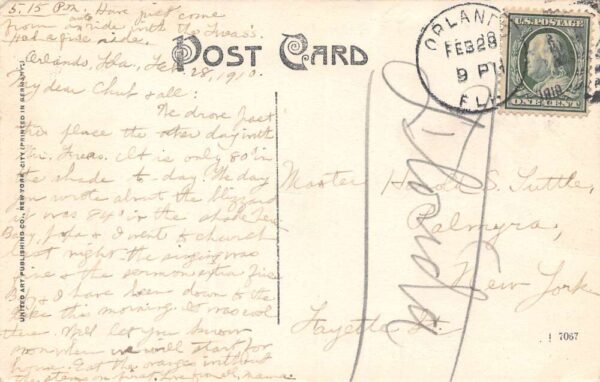 5.15 P.M. Have just come
from an auto ride with the
Had a fine ride.
Orlando, Fla., Feb. 28, 1910.
My dear Chub & all:
We drove past
this place the other day with
It is only 80° in
the shade to day. The day
you wrote about the blizzard
it was 84° in the shade here
Baby, papa & I went to church
last night. The singing was
fine & the sermon extra fine
& I have been down to the
lake this morning. It was cool
there. Will let you know
when we will start for
home. Eat the orange without
the stem on first. Love from mama.
POST CARD
ORLANDO
FEB 28
9 PM
FLA.
1910
U.S. POSTAGE
ONE CENT
Florida
Master Harold S. Tuttle,
Palmyra,
New York
Fayette St.
UNITED ART PUBLISHING CO., NEW YORK CITY (PRINTED IN GERMANY)
7067